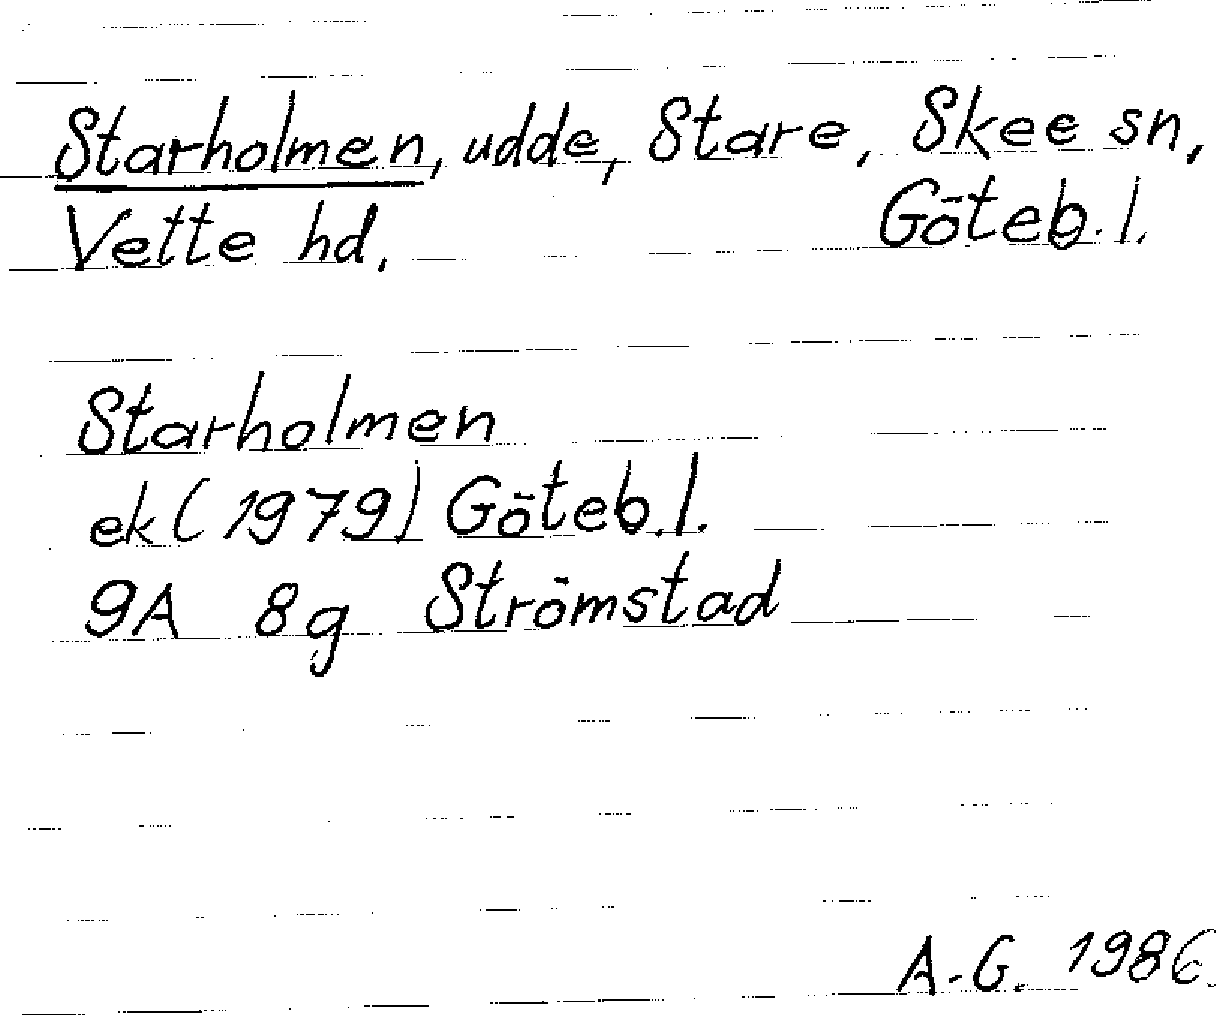 Starholmen, udde, Stare, Skee sn,
Vette hd. Göteb.l.
Starholmen
ek (1979) Göteb.l.
9A 8g Strömstad
A-G. 1986.